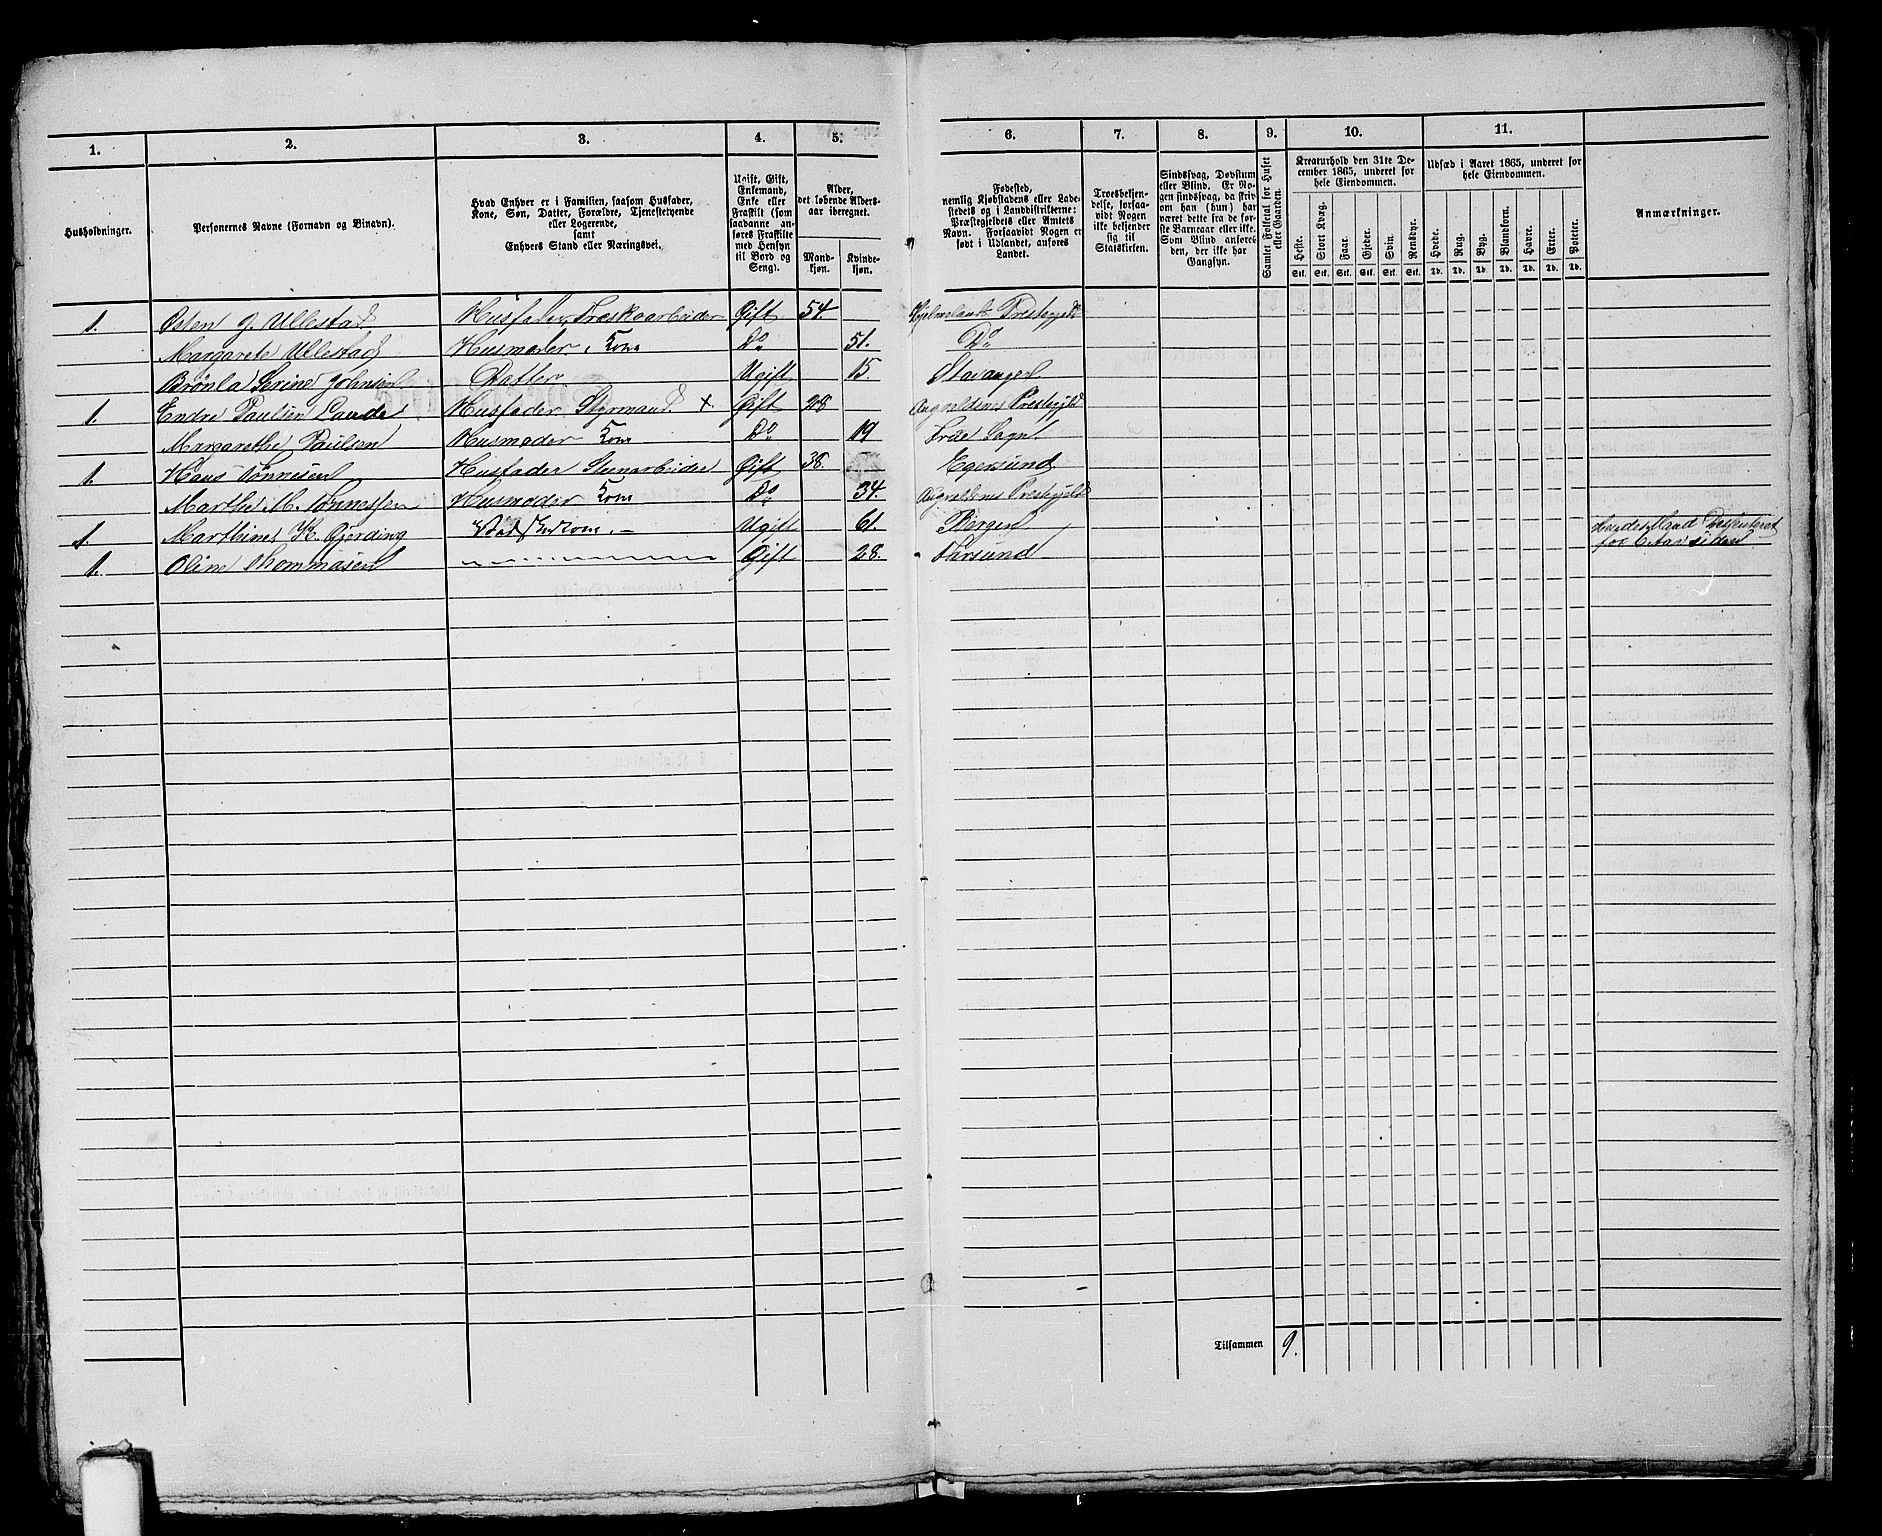 1.
2.
3.
4.
5.
6.
7.
8.
9.
10.
11.
Husholdninger.
Personernes Navne (Fornavn og Binavn).
Hvad Enhver er i Familien, saasom Husfader,
Kone, Søn, Datter, Forældre, Tjenestetyende
eller Logerende,
samt
Enhvers Stand eller Næringsvei.
Ugift, Gift,
Enkemand,
Enke eller
Fraskilt (som
saadanne an-
føres Fraskilte
med Hensyn
til Bord og
Seng).
Alder,
det løbende Alders-
aar iberegnet.
Mand-
kjøn.
Kvinde-
kjøn.
Fødested,
nemlig Kjøbstadens eller Lade-
stedets og i Landdistrikterne:
Præstegjeldets eller Amtets
Navn. Forsaavidt Nogen er
født i Udlandet, anføres
Landet.
Troesbekjen-
delse, forsaa-
vidt Nogen
ikke bekjender
sig til
Statskirken.
Sindssvag, Døvstum
eller Blind. Er No-
gen sindssvag, da skriv
om han (hun) har
været dette fra de før-
ste Barneaar eller ikke.
Som Blind anføres
den, der ikke har
Gangsyn.
Samlet Folketal for Huset
eller Gaarden.
Kreaturhold den 31te De-
cember 1865, underet for
hele Eiendommen.
Heste. Stort Kvæg. Faar. Gjeder. Svin. Rensdyr.
Stk. Stk. Stk. Stk. Stk. Stk.
Udsæd i Aaret 1865, underet for
hele Eiendommen.
Hvede. Rug. Byg. Blandkorn. Havre. Erter. Poteter.
Td. Td. Td. Td. Td. Td. Td.
Anmærkninger.
1. Osten G. Ullestad Husfader, Træskoarbeider Gift 54. Hjelmelands Prestegjeld
Margarete Ullestad Husmoder, Kone Do 51. Do
Serine Johnsen Datter Ugift 15. Stavanger
1. Endre Paulsen Husfader Styrmand × Gift 28 Augvaldsnes Prestegjeld
Margarethe Paulsen Husmoder Kone Do 19 Sogn
1. Hans Tønnesen Husfader Steenarbeider Gift 38. Egersund
Marthe M. Tønnessen Husmoder Kone Do 34. Augvaldsnes Prestegjeld
1. Marthine K. Gjerding Ugift 61. Bergen
1. Oline Thommasen Gift 28. Farsund
Mand
for 6 Aar siden
Tilsammen 9.